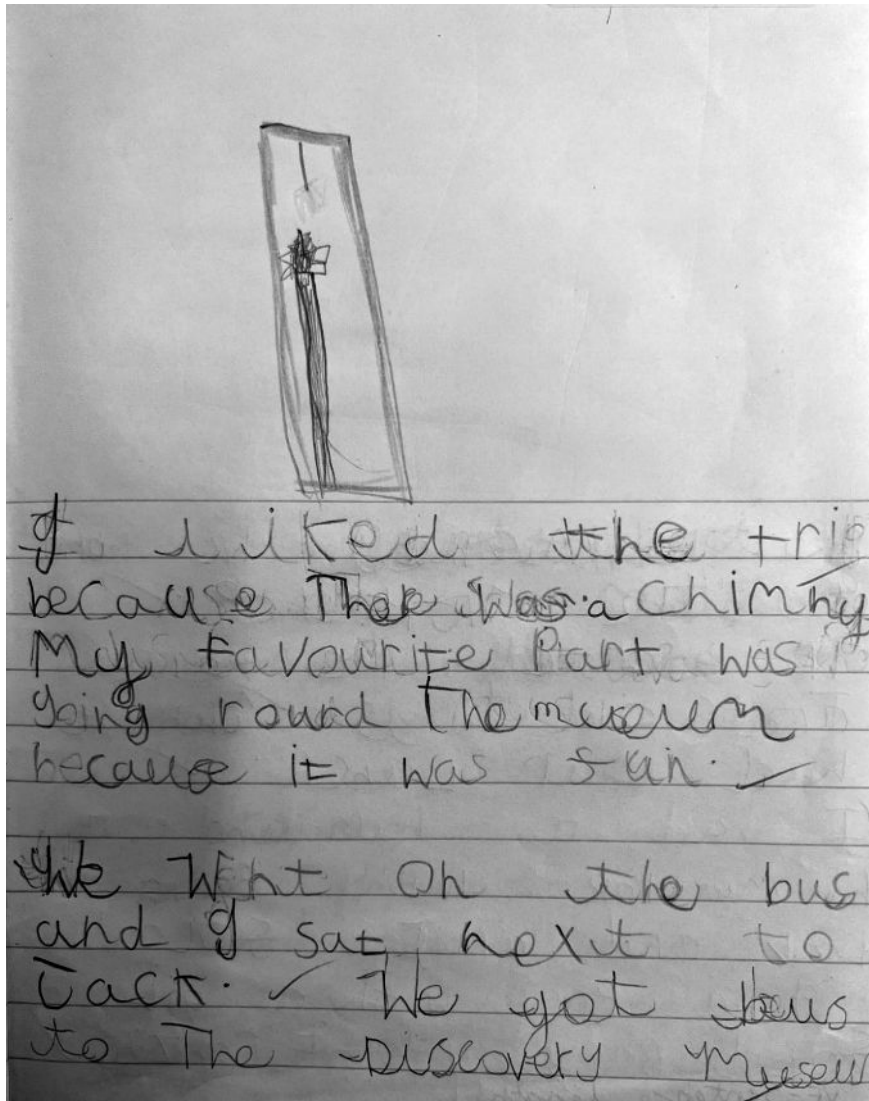 I liked the trip
because Ther was a Chimny
My favourite Part was
going round The museum
because it was fun.
We Wnt on the bus
and I sat next to
Jack. We got bus
to The Discovery Museu